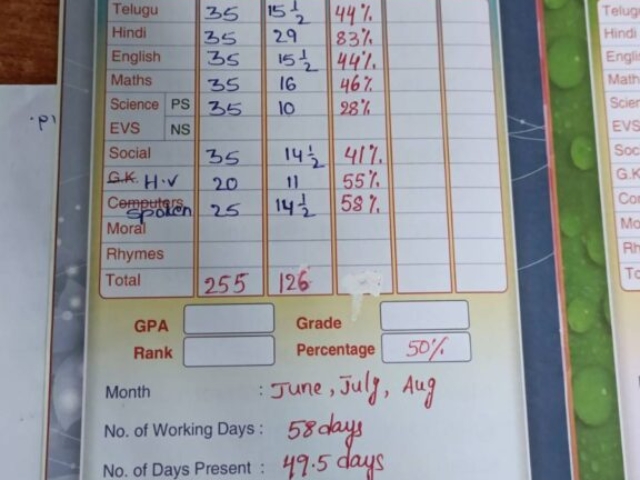 Telugu 35 15 1/2 44%
Hindi 35 29 83%
English 35 15 1/2 44%
Maths 35 16 46%
Science PS 35 10 28%
EVS NS
Social 35 14 1/2 41%
G.K. H.V 20 11 55%
Computers spoken 25 14 1/2 58%
Moral
Rhymes
Total 255 126
GPA Grade
Rank Percentage 50%
Month : June, July, Aug
No. of Working Days : 58 days
No. of Days Present : 49.5 days
Telug
Hindi
Englis
Math
Scie
EVS
Soc
G.K
Co
Mo
Rh
To